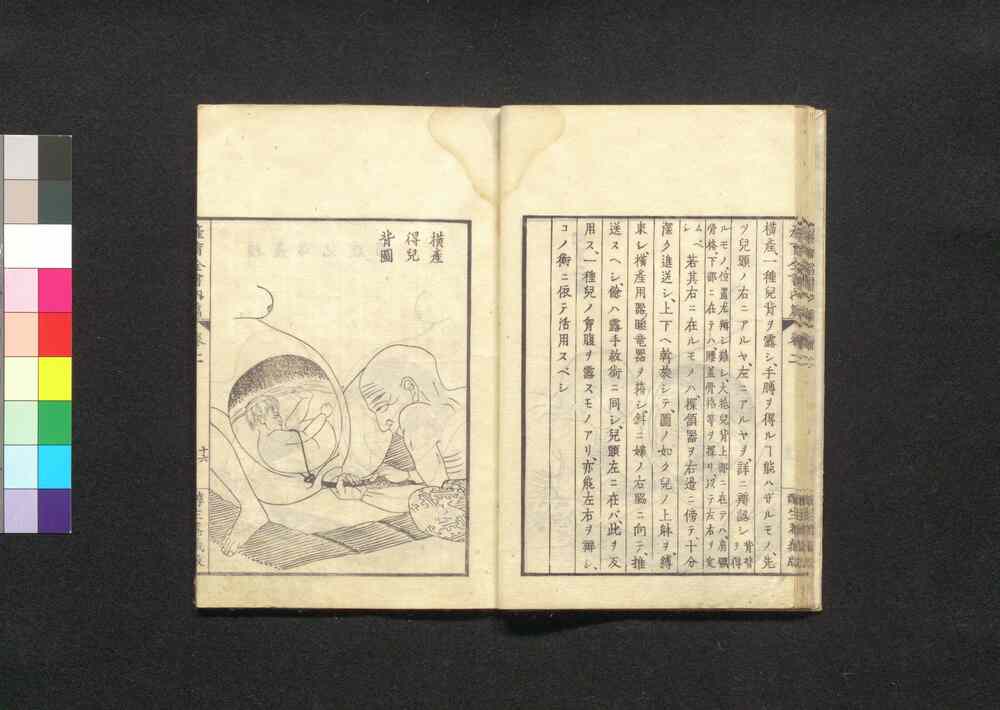 横産、一種兒背ヲ露シ、手膊ヲ得ルヿ能ハザルモノ、先
ツ兒頭ノ右ニアルヤ、左ニアルヤヲ、詳ニ辨認シ
ルモノ、位置
骨格、下部ニ在テハ、腰蓋骨格等ヲ探リ、以テ左右ヲ定
ムベシ 若其右ニ在ルモノハ、探頷器ヲ右邉ニ傍テ、十分
深ク進送シ、上下ヘ斡旋シテ、圖ノ如ク兒ノ上躰ヲ縛
束シ、横産用器、睡竜器ヲ
送スヘシ、餘ハ露手救術ニ同シ、兒頭左ニ在バ、此ヲ反
用ス、一種兒ノ胷腹ヲ露スモノアリ、亦能左右ヲ辨シ、
コノ術ニ依テ活用スベシ
横産
得兒
背圖
産育全書
卷二
十六